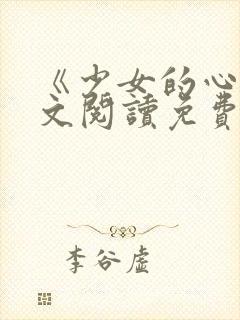 《少女的心
文閱讀免費
李谷虛